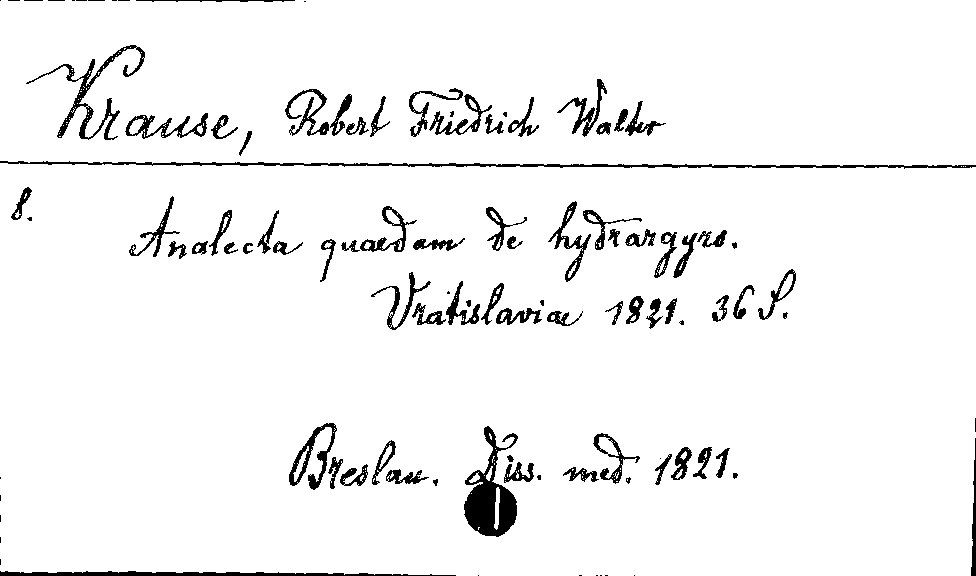 Krause, Robert Friedrich Walter
8.
Analecta quaedam de hydrargyro.
Vratislaviae 1821. 36 S.
Breslau. Diss. med. 1821.